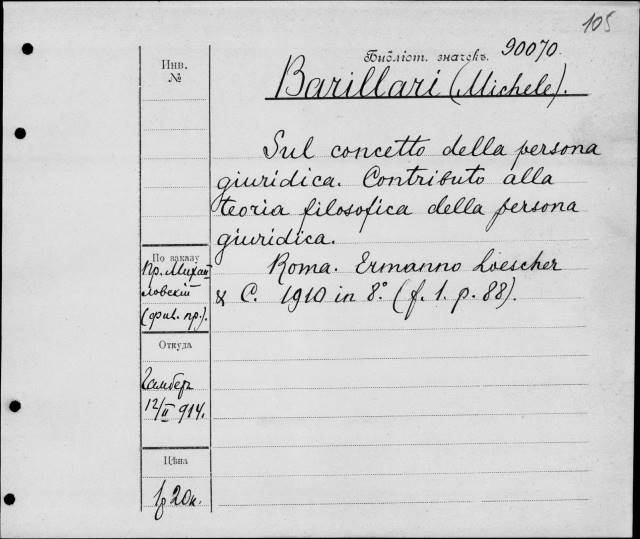 105
Библіот. значекъ. 90070.
Инв.
№
Barillari (Michele).
Sul concetto della persona
giuridica. Contributo alla
teoria filosofica della persona
giuridica.
Roma. Ermanno Loescher
& C. 1910 in 8° (f. 1. p. 88).
По заказу
Пр. Михай
ловскій
(фил. пр.).
Откуда
Гамберъ
12/II 914.
Цѣна
1 р 20 к.